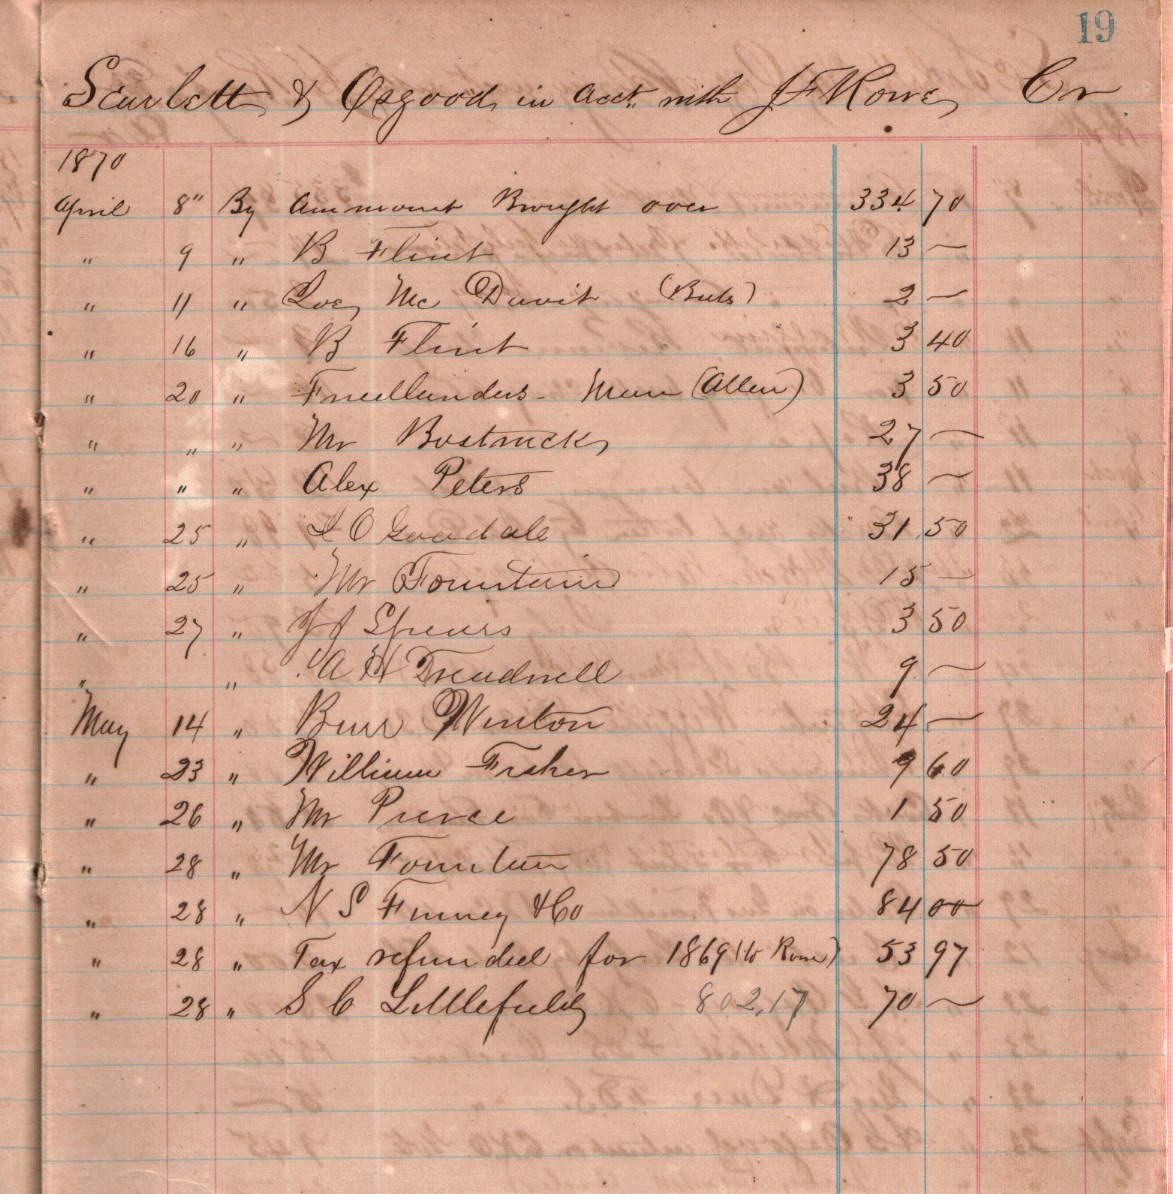 19
Scarlett & Osgood in acct with J F Rowe Cr
1870
April 8" By ammount Brought over 334.70
" 9 " B Flint 13 —
" 11 " Loe, Mc Davit (Buts) 2 —
" 16 " B Flint 3 40
" 20 " Freelanders - Man (Allen) 3 50
" " " Mr Bostwick 27 —
" " " Alex Peters 38 —
" 25 " L O Goodale 31 50
" 25 " Mr Fountain 15 —
" 27 " J J Spears 3 50
" " A H Treadwell 9 —
May 14 " Burr Winton 24 —
" 23 " William Fisher 9 60
" 26 " Mr Pierce 1 50
" 28 " Mr Fountain 78 50
" 28 " N S Finney & Co 84 00
" 28 " Tax refunded for 1869 (to Rowe) 53 97
" 28 " S C Littlefield 802,17 70 —